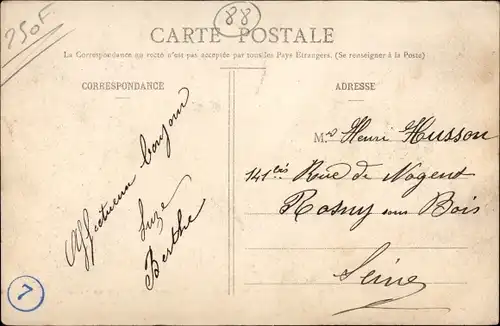 250F
88
CARTE POSTALE
La Correspondance au recto n'est pas acceptée par tous les Pays Etrangers. (Se renseigner à la Poste)
CORRESPONDANCE
Affectueux bonjour
Suze
Berthe
7
ADRESSE
Mr Henri Husson
141 bis Rue de Nogent
Rosny sous Bois
Seine